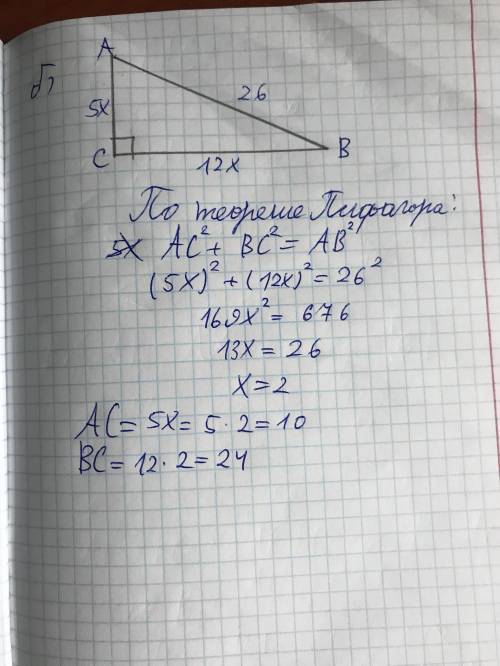 б)
A
26
5x
C
B
12x
По теореме Пифагора:
AC² + BC² = AB²
(5x)² + (12x)² = 26²
169x² = 676
13x = 26
x = 2
AC = 5x = 5 · 2 = 10
BC = 12 · 2 = 24